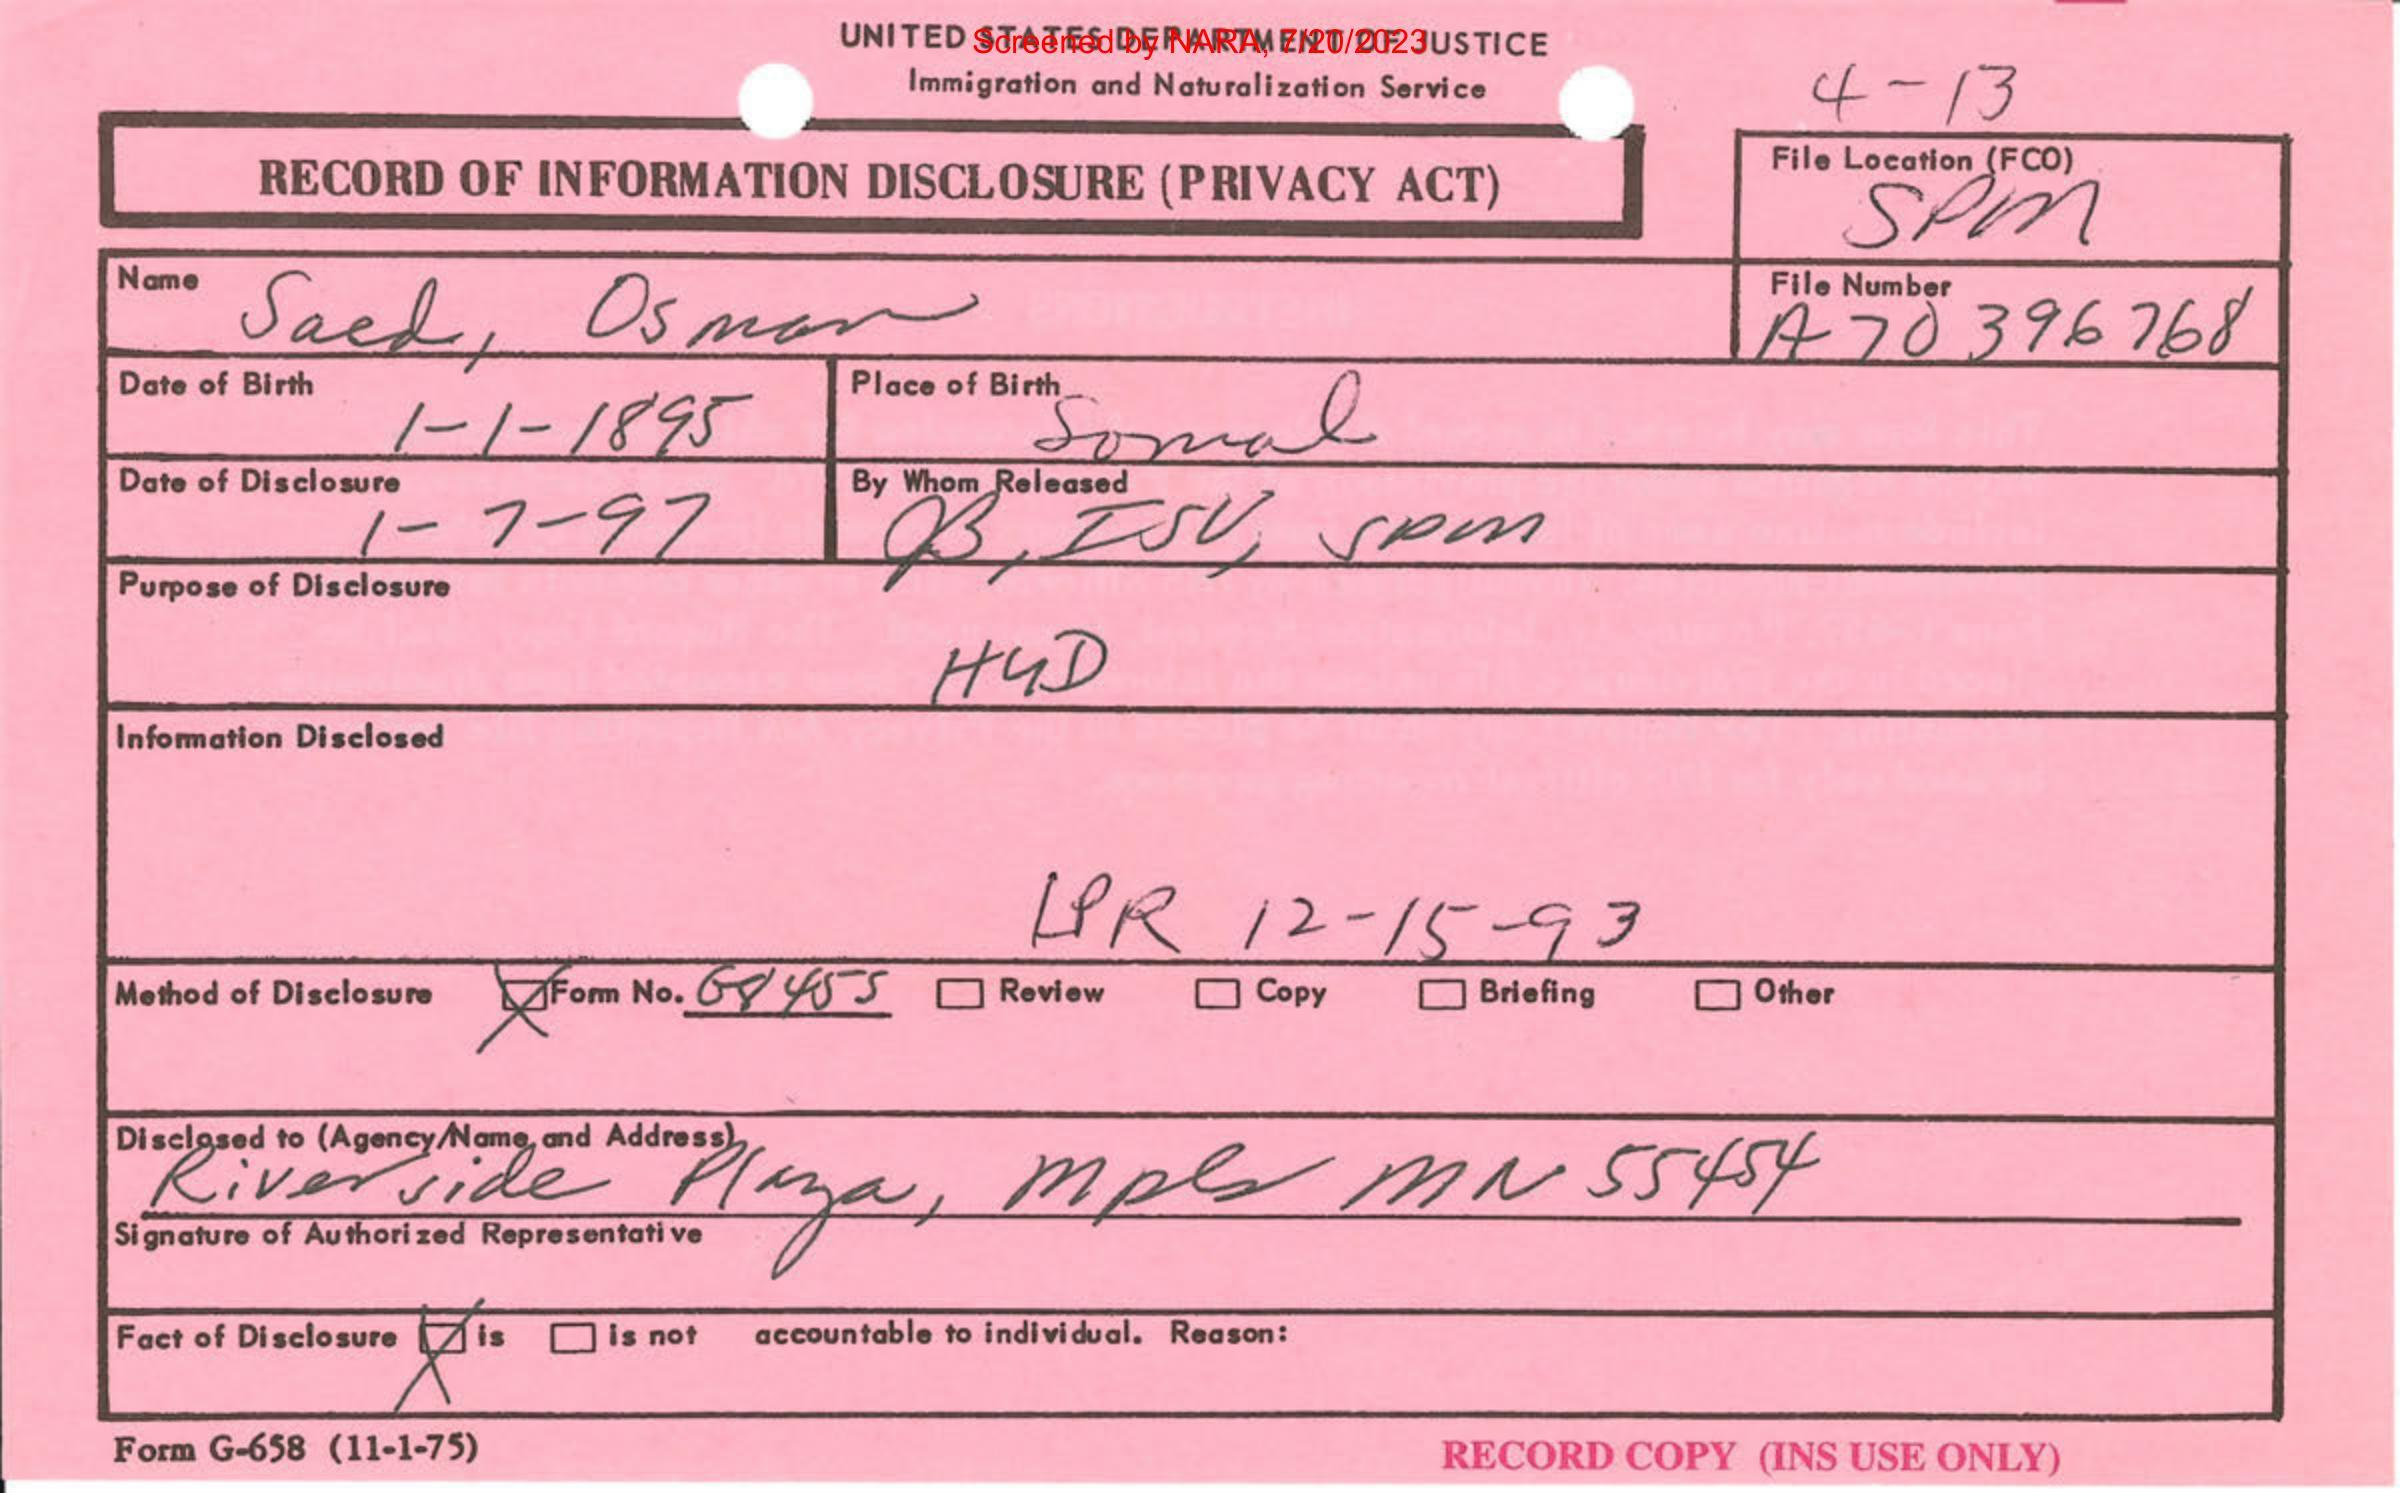 UNITED STATES DEPARTMENT OF JUSTICE
Screened by NARA, 7/20/2023
Immigration and Naturalization Service
4-13
RECORD OF INFORMATION DISCLOSURE (PRIVACY ACT)
File Location (FCO)
SPM
Name Saed, Osman
File Number
A70 396 768
Date of Birth 1-1-1895
Place of Birth Somal
Date of Disclosure 1-7-97
By Whom Released
JB, ISV, SPM
Purpose of Disclosure
HUD
Information Disclosed
LPR 12-15-93
Method of Disclosure Form No. G845S Review Copy Briefing Other
Disclosed to (Agency/Name and Address)
Riverside Plaza, Mpls MN 55454
Signature of Authorized Representative
Fact of Disclosure is is not accountable to individual. Reason:
Form G-658 (11-1-75)
RECORD COPY (INS USE ONLY)